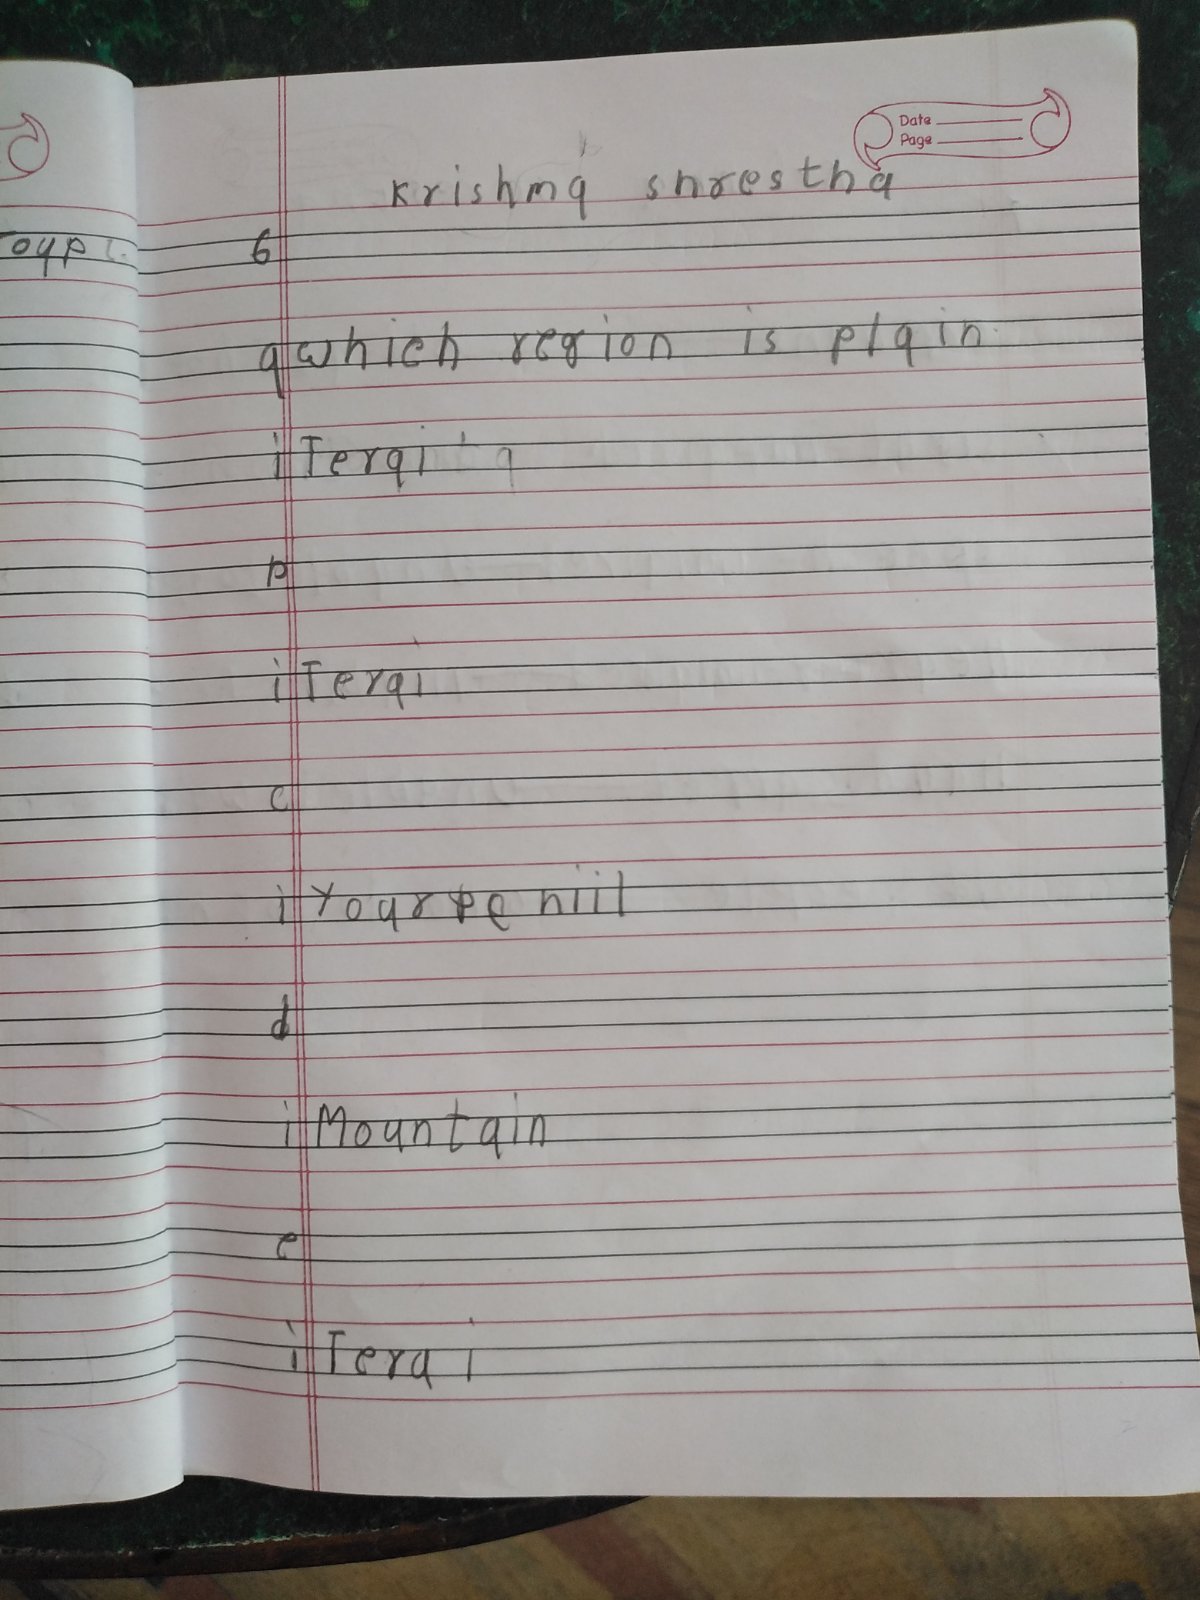 Date
Page
Krishma shrestha
6
a which region is plain
i Terai
b
i Terai
c
i
d
i Mountain
e
i Terai